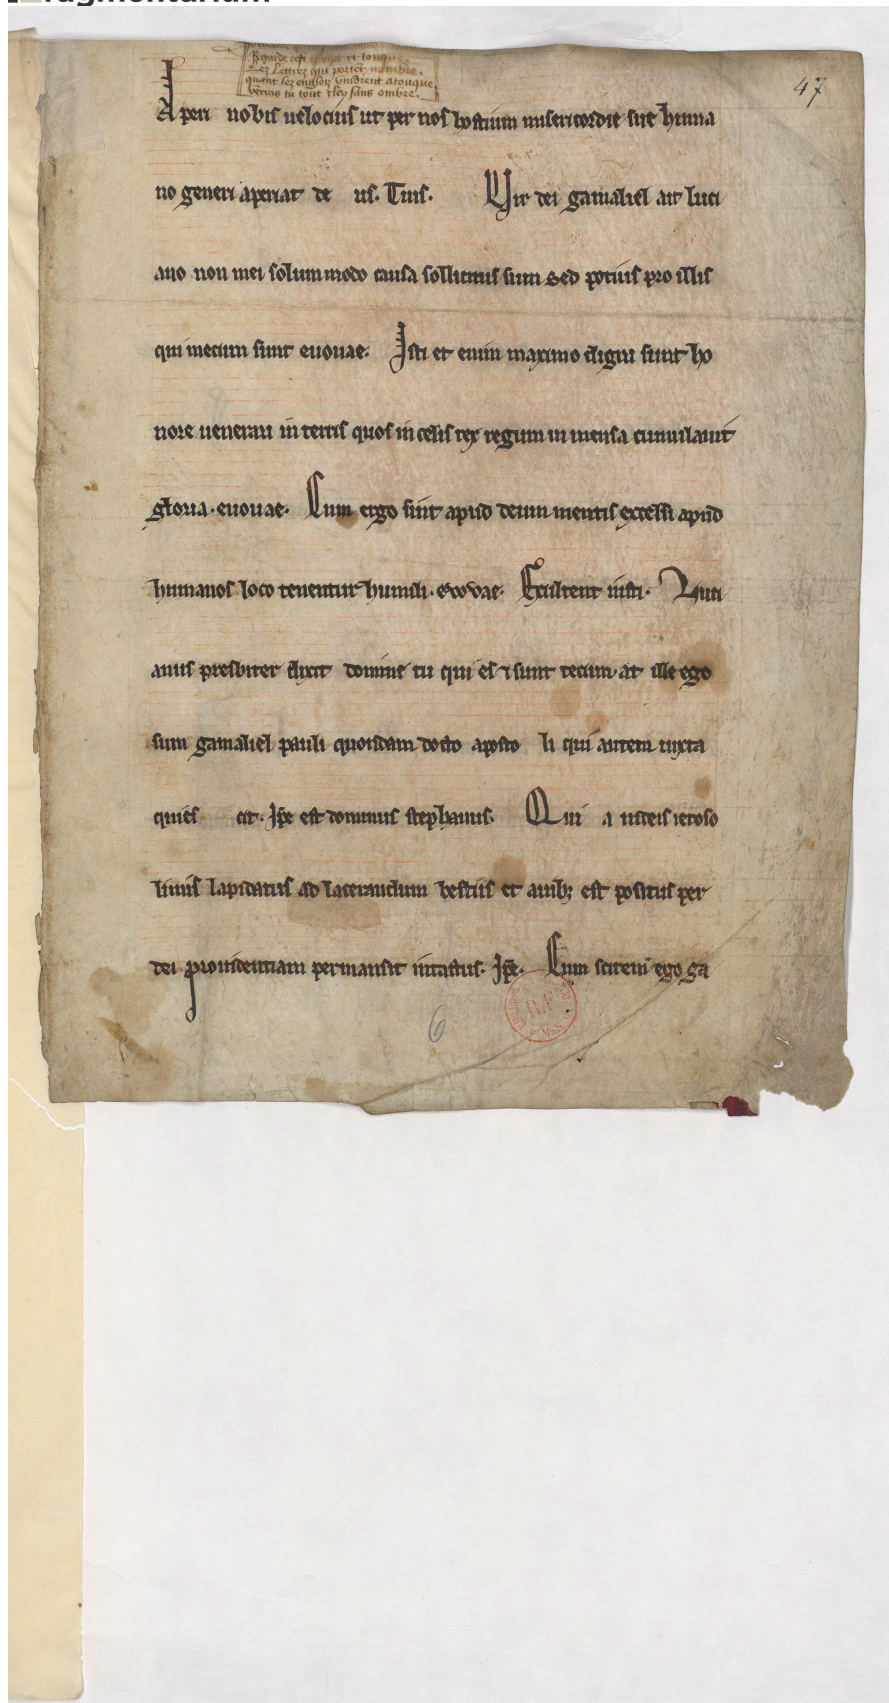 Regarde cest
Lez lettrez qui portet nombre.
quant lez engloiz vindrent atouque
verras tu tout cley sans ombre.
47
Aperi nobis uelocius ut per nos hostium misericordie sue huma
no generi aperiat de us. Tuis. Uir dei gamaliel ait luci
ano non mei solummodo causa sollicitus sum sed potius pro illis
qui mecum sunt euouae. Isti et enim maximo digni sunt ho
nore uenerari in terris quos in celis rex regum in mensa cumulauit
gloria. euouae. Cum ergo sint apud deum mentis excessi apud
humanos loco tenentur humili. euouae. Exultent iusti. Luci
anus presbiter dixit domine tu qui es ⁊ sunt tecum. at ille ego
sum gamaliel pauli quondam docto aposto li qui autem iuxta
quies cit. Ipse est dominus stephanus. Qui a iudeis ieroso
limis lapidatus ad lacerandum bestiis et auibꝫ est positus per
dei prouidentiam permansit intactus. Ipse. Cum scirem ego ga
6